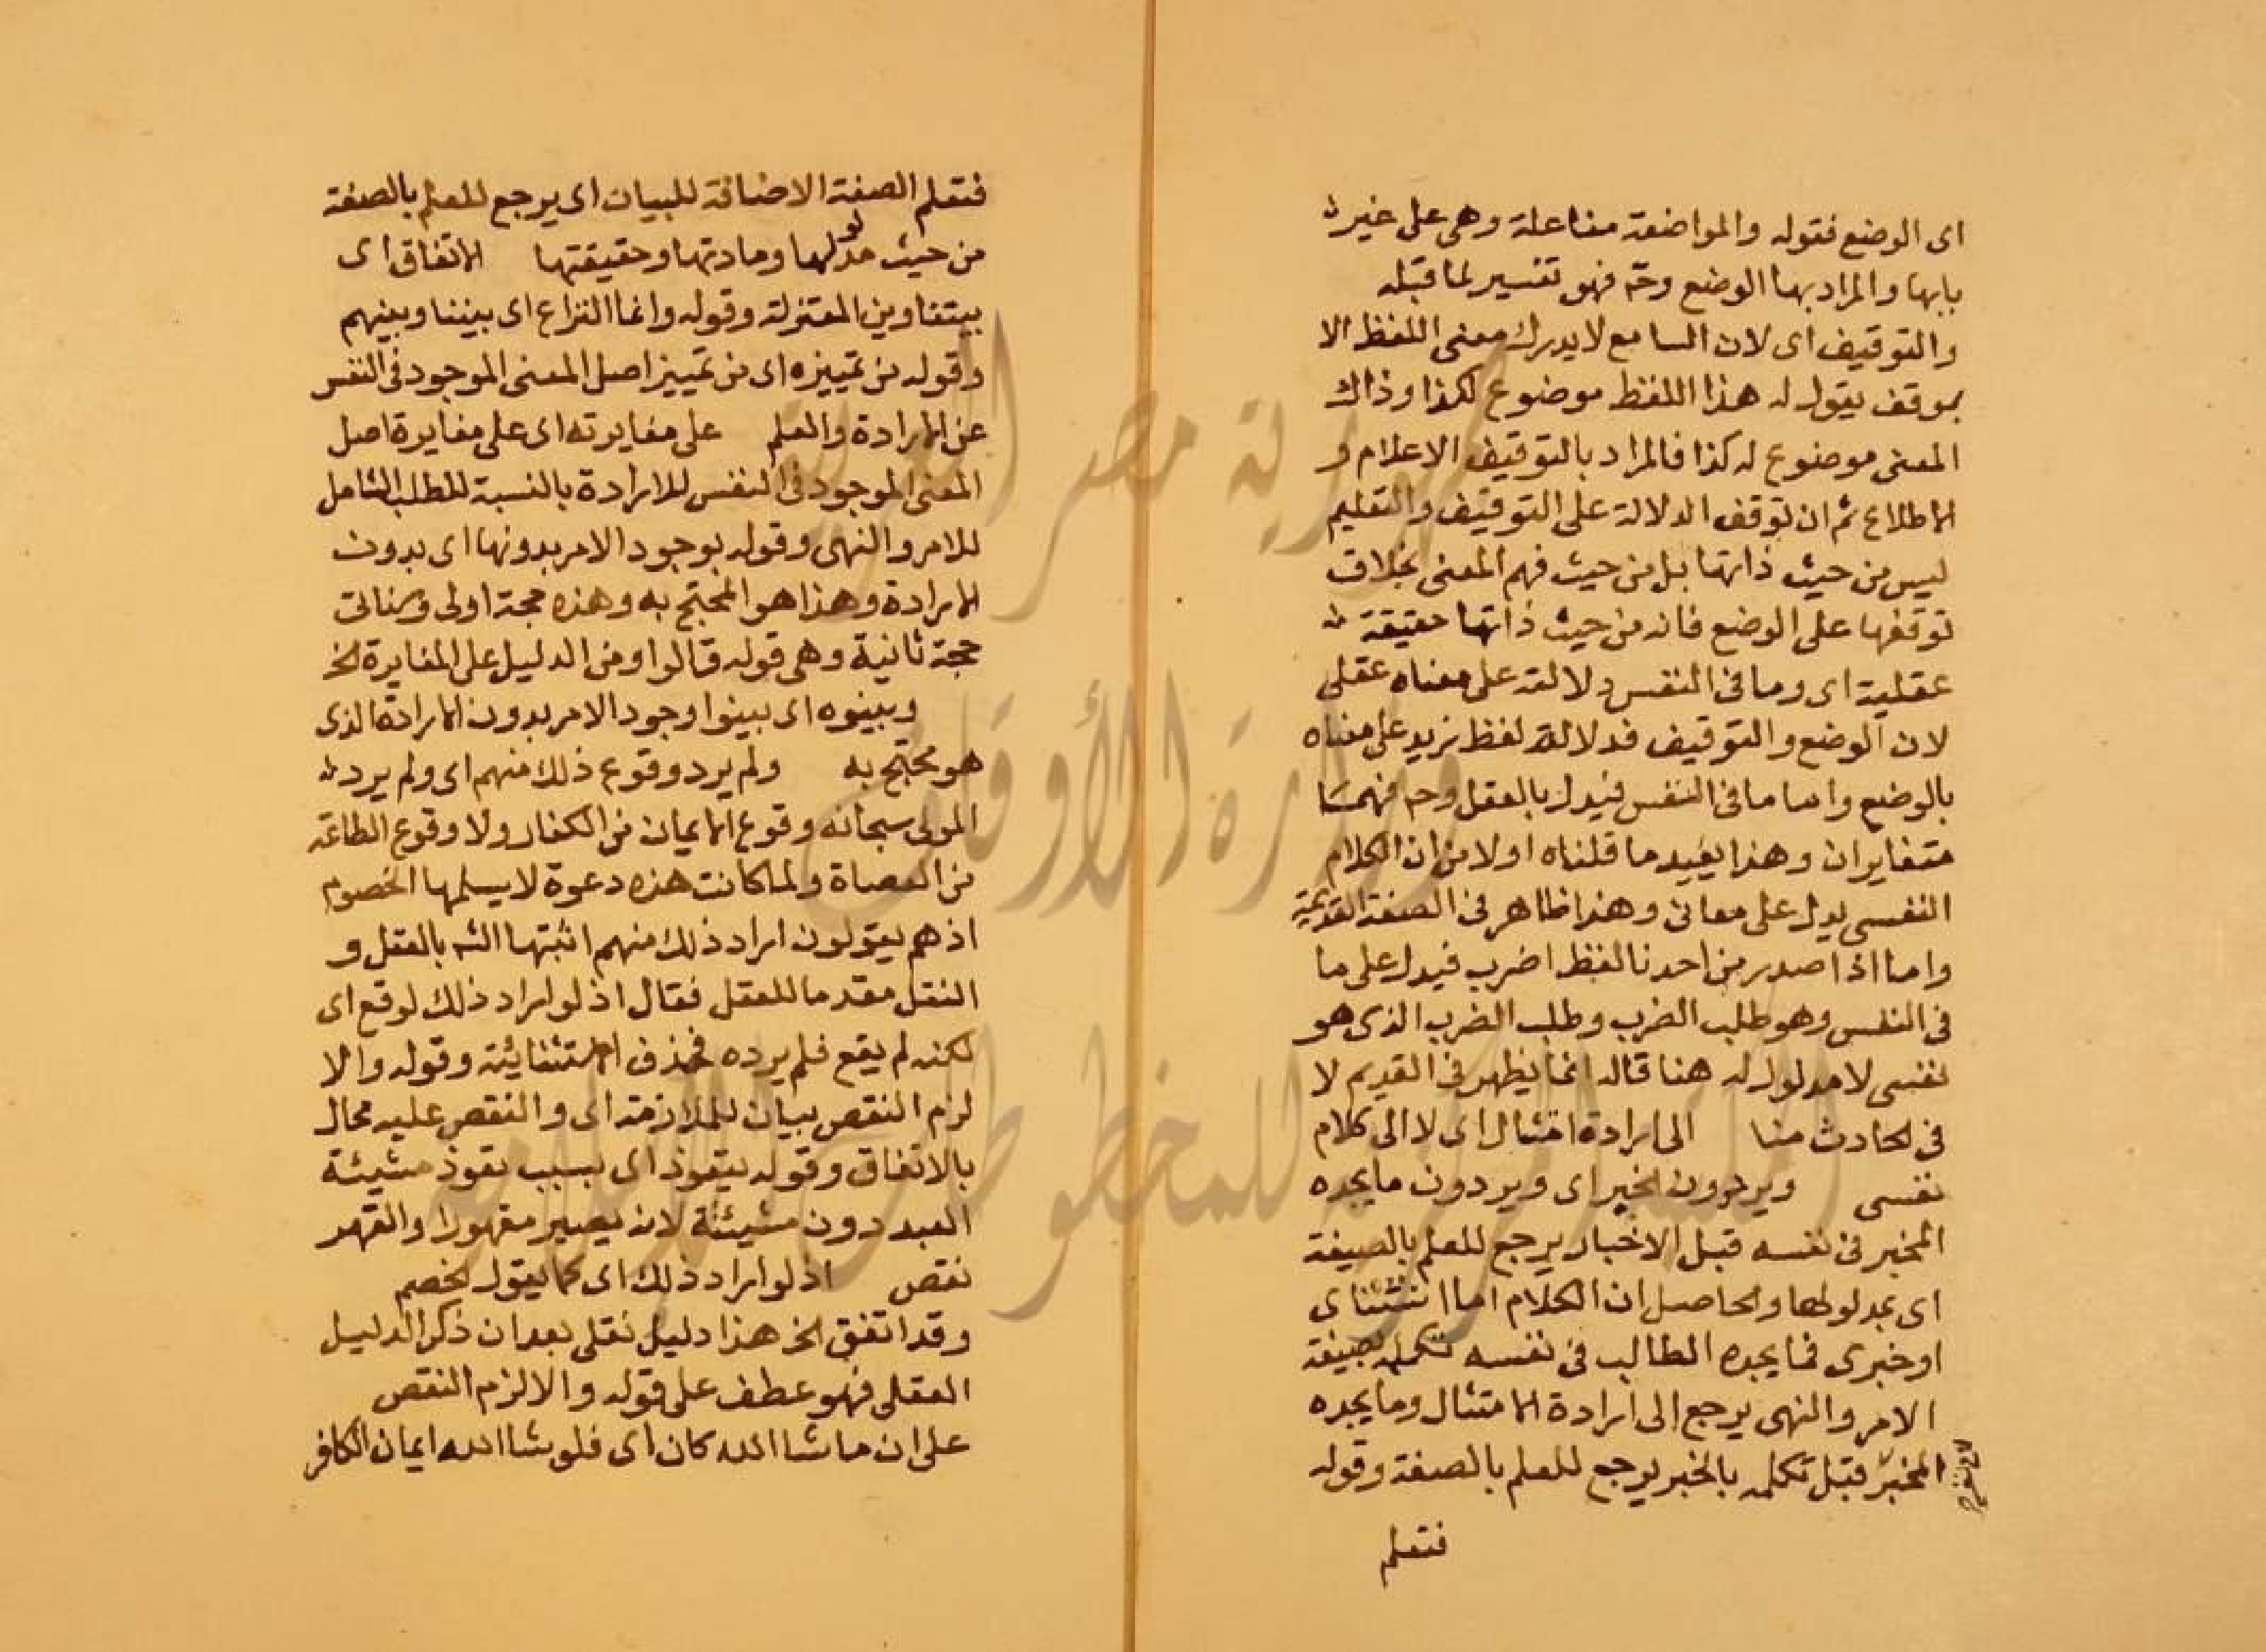 اى الوضع فقوله والمواضعة مفاعلة وهى على غير
بابها والمراد بها الوضع وح فهو تفسير لما قبله
والتوقيف اى لان السامع لا يدرك معنى اللفظ الا
بموقف يقول له هذا اللفظ موضوع لكذا وذاك
المعنى موضوع له كذا فالمراد بالتوقيف الاعلام و
الاطلاع ثم ان توقف الدلالة على التوقيف والتعليم
ليس من حيث ذاتها بل من حيث فهم المعنى بخلاف
توقفها على الوضع فانه من حيث ذاتها حقيقة
عقلية اى وما فى النفس دلالته على معناه عقلى
لان الوضع والتوقيف فدلالة لفظ زيد على معناه
بالوضع واما ما فى النفس فيدل بالعقل وح فهمسا
متغايران وهذا يفيد ما قلناه اولا من ان الكلام
النفسى يدل على معانى وهذا ظاهر فى الصفة القديمة
واما اذا صدر من احدنا لفظ اضرب فيدل على ما
فى النفس وهو طلب الضرب وطلب الضرب الذى هو
نفسى لا مدلول له هنا قاله انما يظهر فى القديم لا
فى الحادث منا الى ارادة امتثال اى لا الى كلام
نفسى ويردون الخبر اى ويردون ما يجده
المخبر فى نفسه قبل الاخبار يرجع للعلم بالصيغة
اى بمدلولها والحاصل ان الكلام اما انشائى
او خبرى فما يجده الطالب فى نفسه تكلمه بصيغة
الامر والنهى يرجع الى ارادة الامتثال وما يجده
المخبر قبل تكلمه بالخبر يرجع للعلم بالصفة وقوله
فتعلم
فتعلم الصفة الاضافة للبيان اى يرجع للعلم بالصفة
من حيث مدلولها ومادتها وحقيقتها الاتفاق اى
بيننا وبين المعتزلة وقوله وانما النزاع اى بيننا وبينهم
وقوله من تمييزه اى من تمييز اصل المعنى الموجود فى النفس
عن الارادة والعلم على مغايرته اى على مغايرة اصل
المعنى الموجود فى النفس للارادة بالنسبة للطلب الشامل
للامر والنهى وقوله بوجود الامر بدونها اى بدون
الارادة وهذا هو المحتج به وهذه حجة اولى
حجة ثانية وهى قوله قالوا ومن الدليل على المغايرة الخ
وبينوه اى بينوا وجود الامر بدون الارادة الذى
هو محتج به ولم يرد وقوع ذلك منهم اى ولم يرد
المولى سبحانه وقوع الايمان من الكفار ولا وقوع الطاعة
من العصاة ولما كانت هذه دعوة لا يسلمها الخصوم
اذ هم يقولون اراد ذلك منهم اثبتها الشه بالعقل و
النقل مقدما للعقل فقال اذ لو اراد ذلك لوقع اى
لكنه لم يقع فلم يرده فحذف الاستثنائية وقوله والا
لزم النقص بيان للملازمة اى والنقص عليه محال
بالاتفاق وقوله بنفوذ اى بسبب نفوذ مشيئة
العبد دون مشيئته لانه يصير مقهورا والقهر
نقص اذ لو اراد ذلك اى كما يقول الخصم
وقد اتفق الخ هذا دليل نقلى بعد ان ذكر الدليل
العقلى فهو عطف على قوله والا لزم النقص
على ان ما شا الله كان اى فلو شا الله ايمان الكافر
جمهورية مصر العربية
وزارة الأوقاف
المكتبة المركزية للمخطوطات الإسلامية